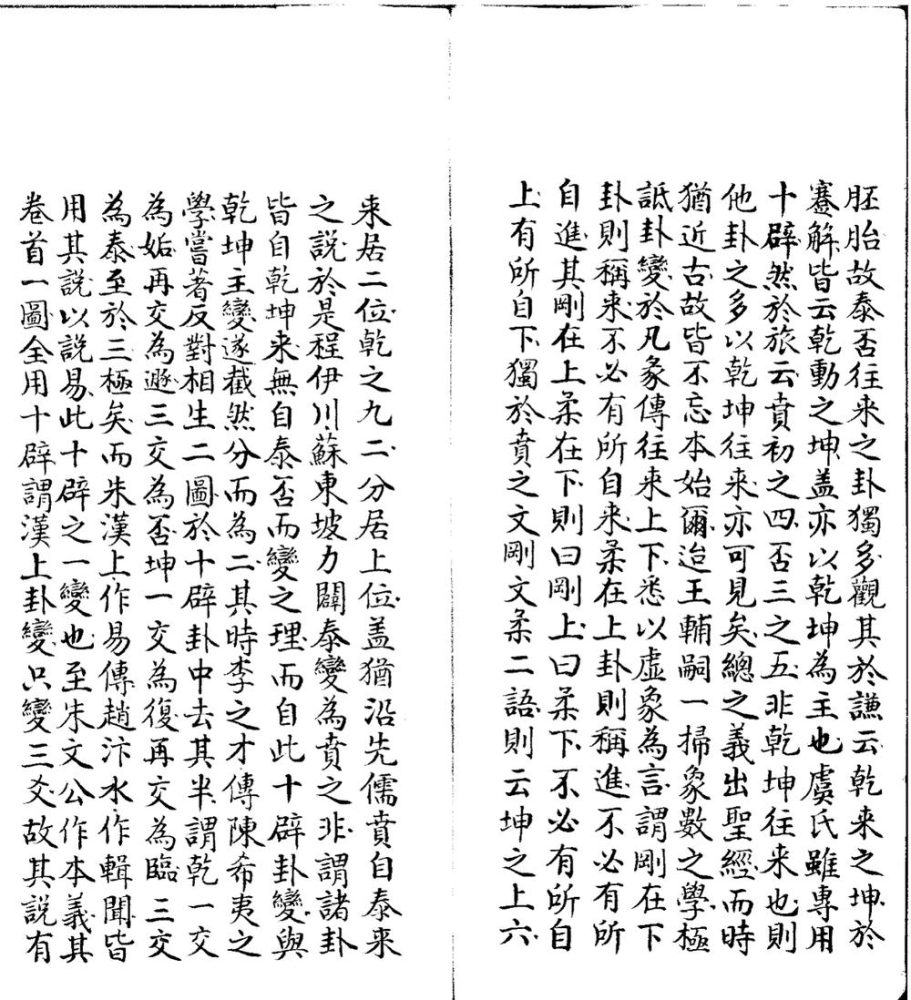 胚胎故泰否往来之卦獨多觀其於謙云乾来之坤於
蹇解皆云乾動之坤盖亦以乾坤為主也虞氏雖專用
十辟然於旅云賁初之四否三之五非乾坤往来也則
他卦之多以乾坤往来亦可見矣總之義出聖經而時
猶近古故皆不忘本始爾迨王輔嗣一掃象數之學極
詆卦變於凡彖傳往来上下悉以虚象為言謂剛在下
卦則稱来不必有所自来柔在上卦則稱進不必有所
自進其剛在上柔在下則曰剛上曰柔下不必有所自
上有所自下獨於賁之文剛文柔二語則云坤之上六
来居二位乾之九二分居上位盖猶沿先儒賁自泰来
之說於是程伊川蘇東坡力闢泰變為賁之非謂諸卦
皆自乾坤来無自泰否而變之理而自此十辟卦變與
乾坤主變遂截然分而為二其時李之才傳陳希夷之
學嘗著反對相生二圖於十辟卦中去其半謂乾一交
為姤再交為遯三交為否坤一交為復再交為臨三交
為泰至於三極矣而朱漢上作易傳趙汴水作輯聞皆
用其說以說易此十辟之一變也至朱文公作本義其
卷首一圖全用十辟謂漢上卦變只變三爻故其說有